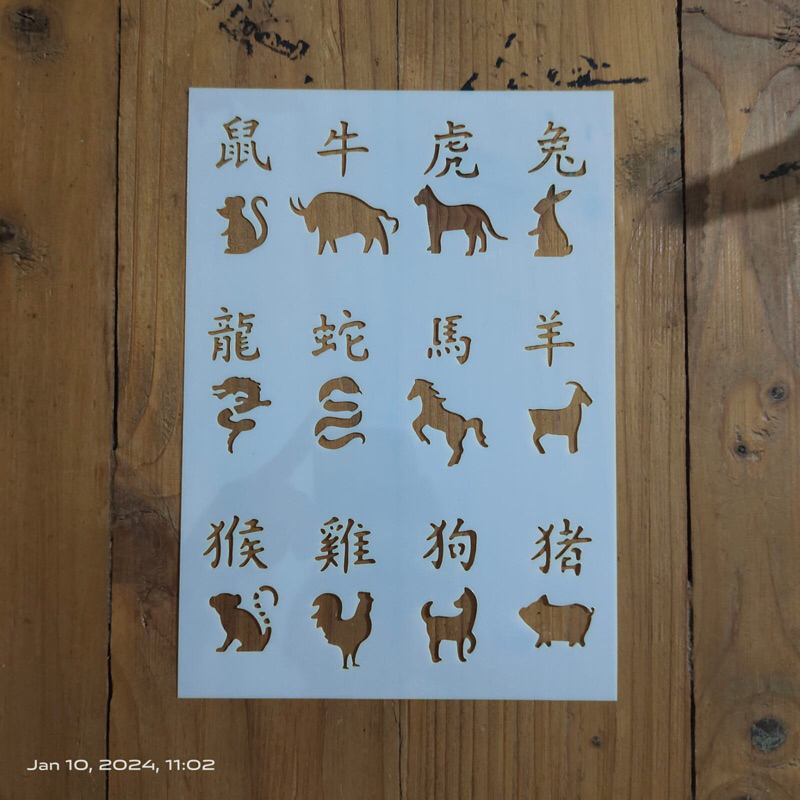 鼠 牛 虎 兔
龍 蛇 馬 羊
猴 雞 狗 猪
Jan 10, 2024, 11:02